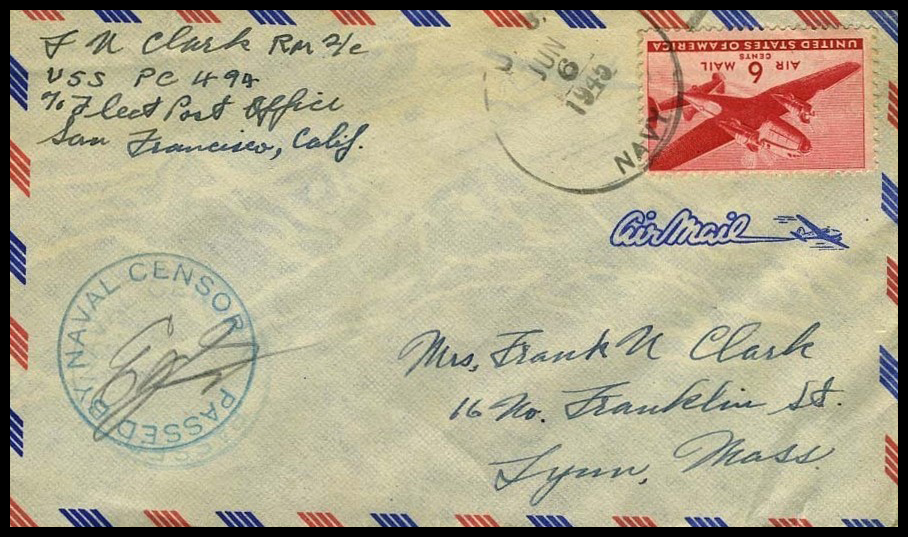 F N Clark RM 2/c
USS PC 494
℅ Fleet Post Office
San Francisco, Calif.
U. S.
JUN
6
1945
NAVY
UNITED STATES OF AMERICA
AIR MAIL
CENTS
6
Air Mail
PASSED BY NAVAL CENSOR
Mrs, Frank N Clark
16 No. Franklin St.
Lynn, Mass.